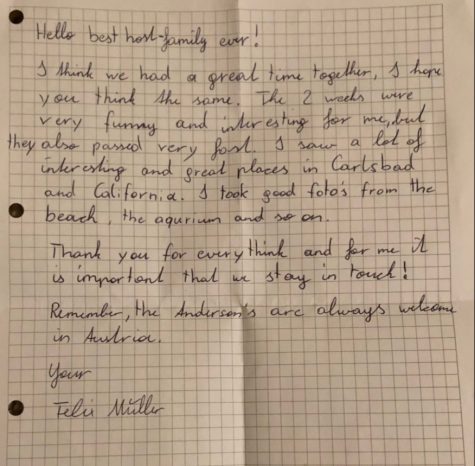 Hello best host-family ever!
I think we had a great time together, I hope
you think the same. The 2 weeks were
very funny and interesting for me, but
they also passed very fast. I saw a lot of
interesting and great places in Carlsbad
and California. I took good foto's from the
beach, the aqurium and so on.
Thank you for everythink and for me it
is important that we stay in touch!
Remember, the Anderson's are always welcome
in Austria.
Your
Felix Müller